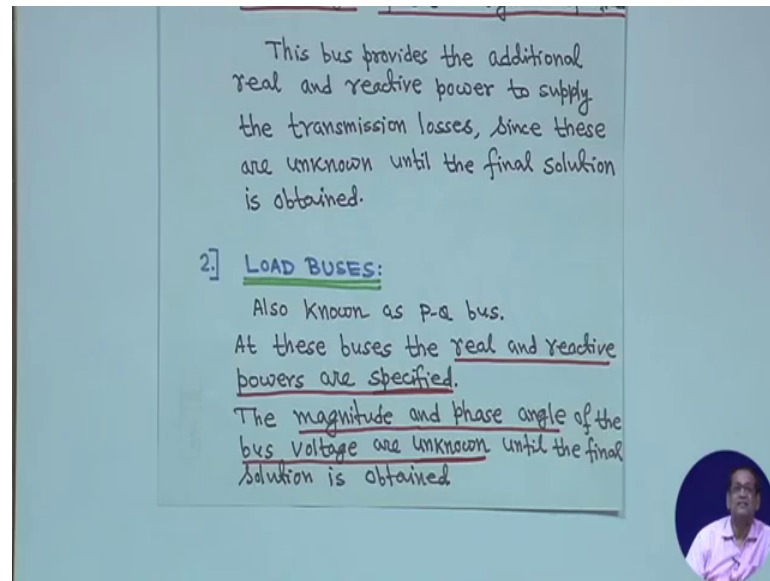 This bus provides the additional
real and reactive power to supply
the transmission losses, since these
are unknown until the final solution
is obtained.
2.] LOAD BUSES:
Also known as P-Q bus.
At these buses the real and reactive
powers are specified.
The magnitude and phase angle of the
bus voltage are unknown until the final
solution is obtained